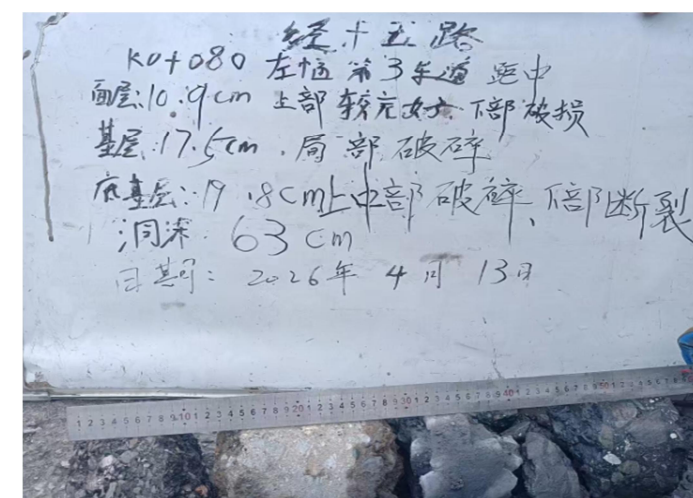 经十五路
K0+080 左幅 第3车道 距中
面层:10.9cm 上部较完好、下部破损
基层:17.5cm.局部破碎
底基层:19.8cm上中部破碎、下部断裂
洞深:63cm
日期:2026年4月13日
1 2 3 4 5 6 7 8 9 10 1 2 3 4 5 6 7 8 9 20 1 2 3 4 5 6 7 8 9 30 1 2 3 4 5 6 7 8 9 40 1 2 3 4 5 6 7 8 9 50 1 2 3 4 5 6